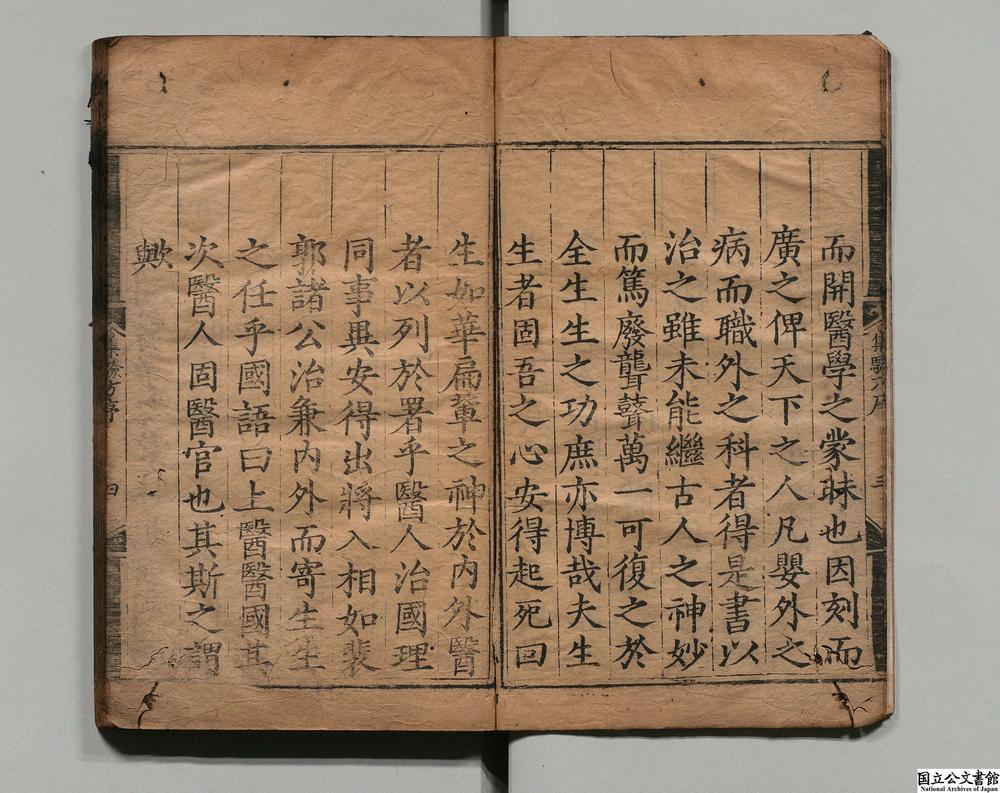 而開醫學之蒙昧也因刻而
廣之俾天下之人凡嬰外之
病而職外之科者得是書以
治之雖未能繼古人之神妙
而篤廢聾瞽萬一可復之於
全生生之功庶亦博哉夫生
生者固吾之心安得起死回
生如華扁輩之神於内外醫
者以列於署乎醫人治國理
同事異安得出將入相如裴
郭諸公治兼内外而寄生生
之任乎國語曰上醫醫國其
次醫人固醫官也其斯之謂
歟
集驗方序
三
集驗方序
四
国立公文書館
National Archives of Japan